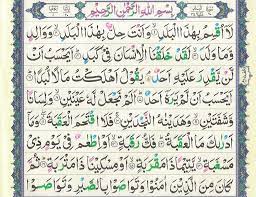 بِسْمِ اللّٰهِ الرَّحْمٰنِ الرَّحِيْمِ
لَاۤ اُقْسِمُ بِهٰذَا الْبَلَدِ وَاَنْتَ حِلٌّۢ بِهٰذَا الْبَلَدِ وَوَالِدٍ
وَّمَا وَلَدَ لَقَدْ خَلَقْنَا الْاِنْسَانَ فِيْ كَبَدٍ اَيَحْسَبُ اَنْ
لَّنْ يَّقْدِرَ عَلَيْهِ اَحَدٌ يَقُوْلُ اَهْلَكْتُ مَالًا لُّبَدًا
اَيَحْسَبُ اَنْ لَّمْ يَرَهٗۤ اَحَدٌ اَلَمْ نَجْعَلْ لَّهٗ عَيْنَيْنِ وَلِسَانًا
وَّشَفَتَيْنِ وَهَدَيْنٰهُ النَّجْدَيْنِ فَلَا اقْتَحَمَ الْعَقَبَةَ وَمَاۤ
اَدْرٰىكَ مَا الْعَقَبَةُ فَكُّ رَقَبَةٍ اَوْ اِطْعٰمٌ فِيْ يَوْمٍ ذِيْ
مَسْغَبَةٍ يَّتِيْمًا ذَا مَقْرَبَةٍ اَوْ مِسْكِيْنًا ذَا مَتْرَبَةٍ ثُمَّ
كَانَ مِنَ الَّذِيْنَ اٰمَنُوْا وَتَوَاصَوْا بِالصَّبْرِ وَتَوَاصَوْا